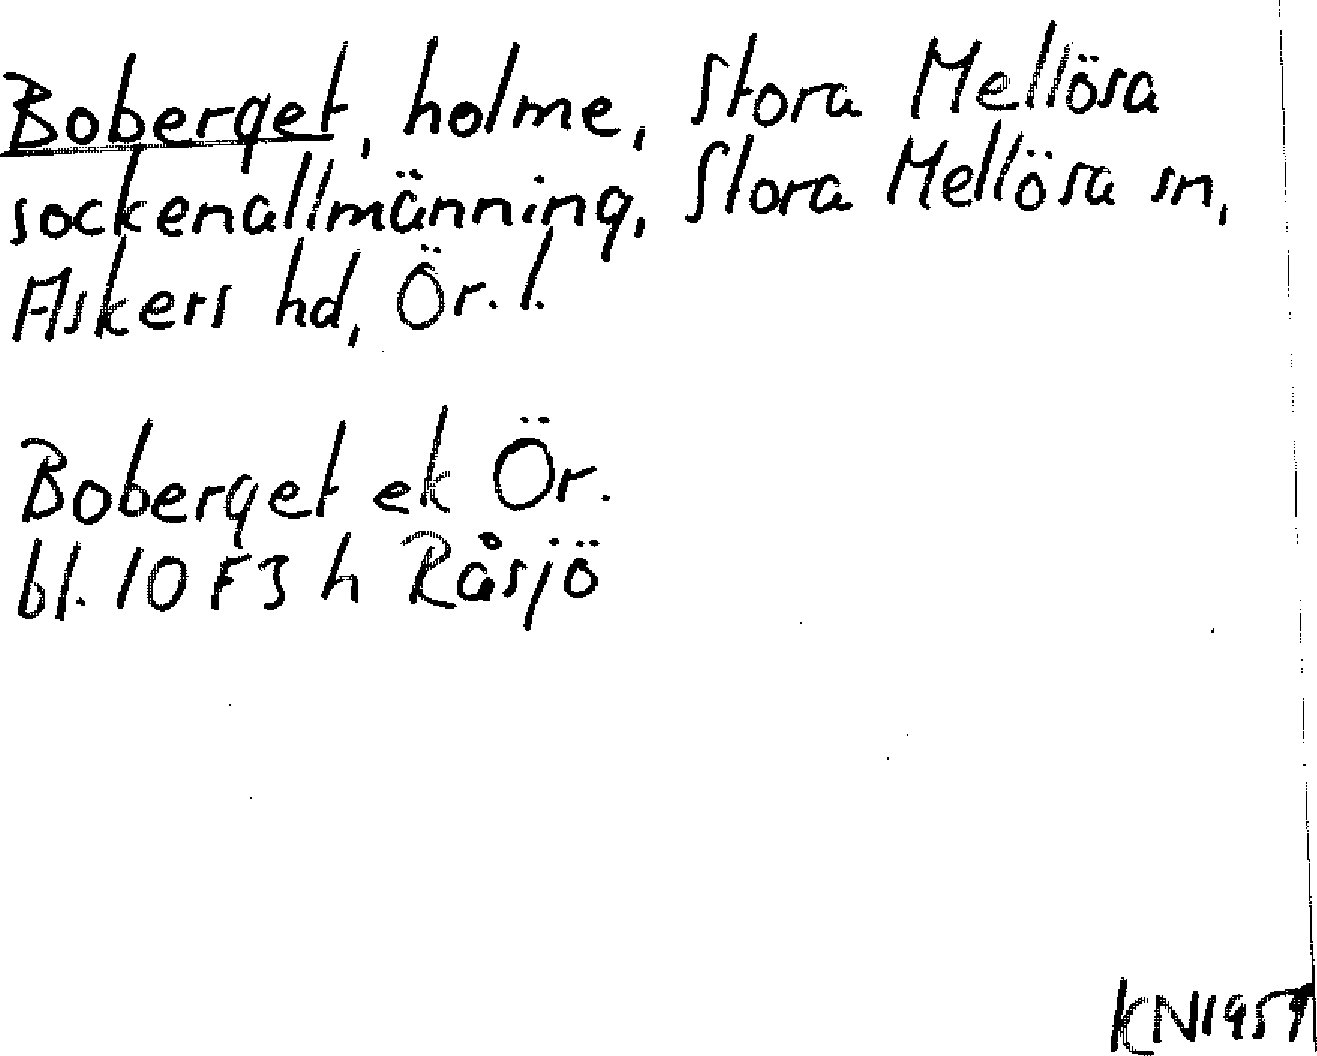 Boberget, holme, Stora Mellösa
sockenallmänning, Stora Mellösa sn,
Askers hd, Ör. l.
Boberget ek Ör.
bl. 10 F 3 h Råsjö